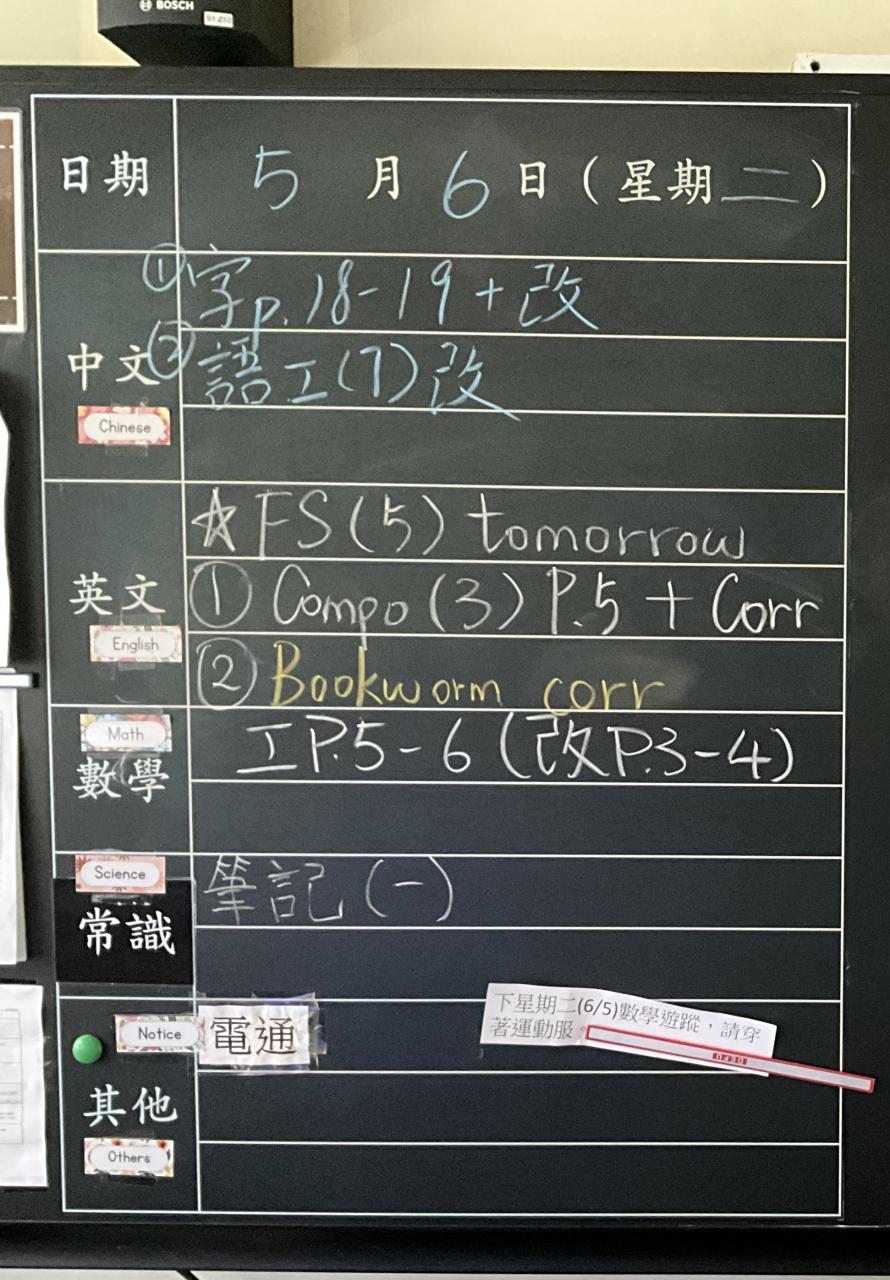 BOSCH
日期 5 月 6 日 (星期二)
① 字p.18-19+改
中文 ② 語工(7)改
Chinese
☆FS(5) tomorrow
英文 ① Compo(3) P.5 + Corr
English
② Bookworm corr
Math 工P.5-6(改P.3-4)
數學
Science 筆記(一)
常識
Notice 電通
下星期二(6/5)數學遊蹤，請穿
著運動服。
其他
Others